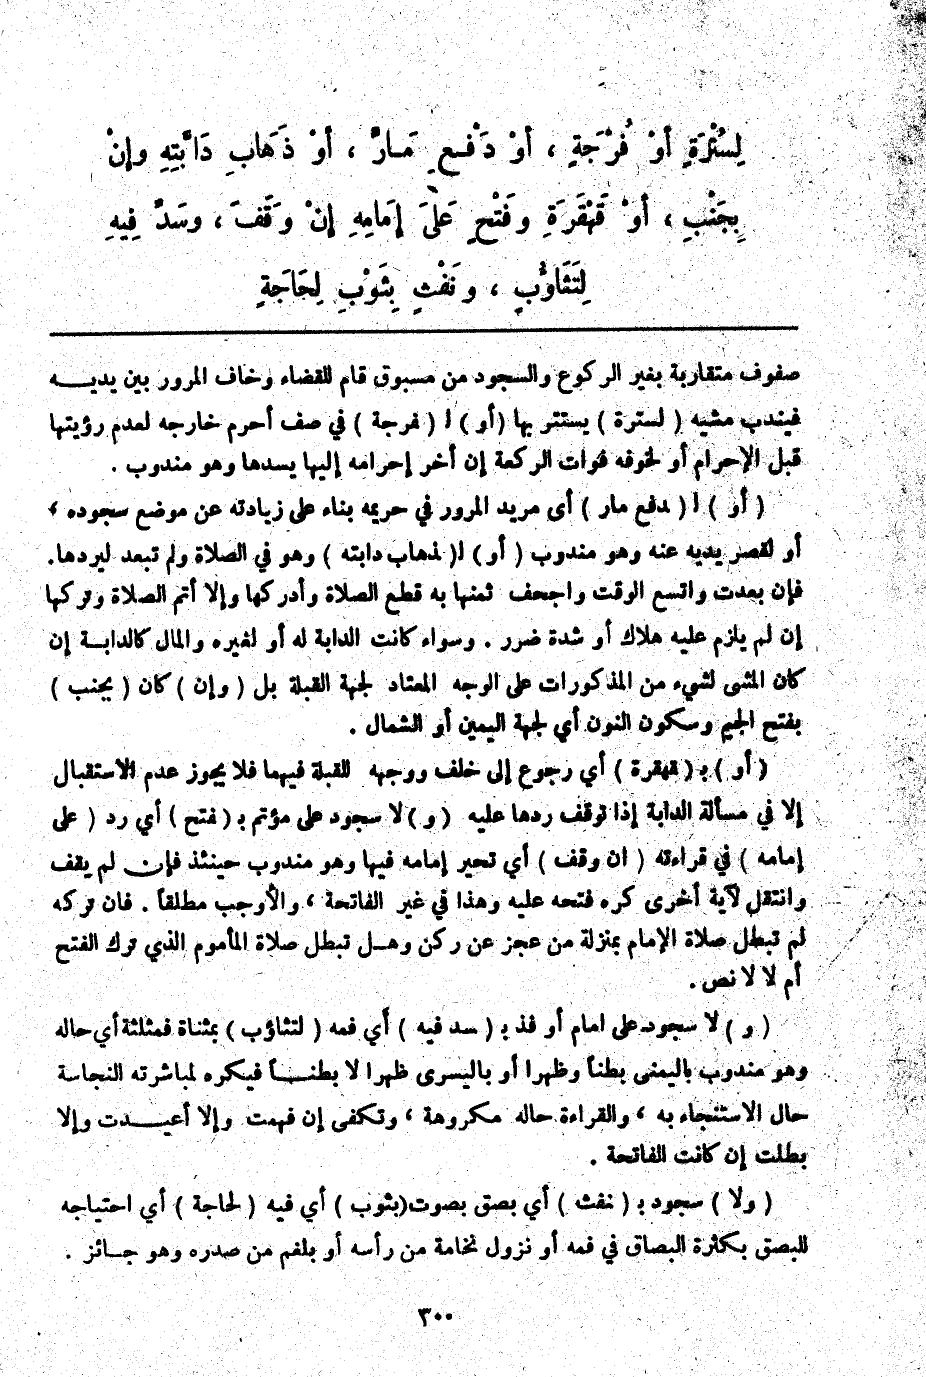 لِسُتْرَةٍ أَوْ فُرْجَةٍ ، أَوْ دَفْعِ مَارٍّ ، أَوْ ذَهَابِ دَابَّتِهِ وإِنْ
بِجَنْبٍ ، أَوْ قَهْقَرَةٍ وفَتْحٍ عَلَى إِمَامِهِ إِنْ وَقَفَ ، وسَدِّ فِيهِ
لِتَثَاؤُبٍ ، ونَفْثٍ بِثَوْبٍ لِحَاجَةٍ
صفوف متقاربة بغير الركوع والسجود من مسبوق قام للقضاء وخاف المرور بين يديـــه
فيندب مشيه ( لسترة ) يستتر بها ( أو ) لـ ( فرجة ) في صف أحرم خارجه لعدم رؤيتها
قبل الإحرام أو لخوفه فوات الركعة إن أخر إحرامه إليها يسدها وهو مندوب .
( أو ) لـ ( دفع مار ) أى مريد المرور في حريمه بناء على زيادته عن موضع سجوده ،
أو لقصر يديه عنه وهو مندوب ( أو ) لـ( ذهاب دابته ) وهو في الصلاة ولم تبعد ليردها.
فإن بعدت واتسع الوقت واجحف ثمنها به قطع الصلاة وأدركها وإلا أتم الصلاة وتركها
إن لم يلزم عليه هلاك أو شدة ضرر . وسواء كانت الدابة له أو لغيره والمال كالدابــة إن
كان المشى لشيء من المذكورات على الوجه المعتاد لجهة القبلة بل ( وإن ) كان ( بجنب )
بفتح الجيم وسكون النون أي لجهة اليمين أو الشمال .
( أو ) بـ ( قهقرة ) أي رجوع إلى خلف ووجهه للقبلة فيهما فلا يجوز عدم الاستقبال
إلا في مسألة الدابة إذا توقف ردها عليه ( و ) لا سجود على مؤتم بـ ( فتح ) أي رد ( على
إمامه ) في قراءته ( ان وقف ) أي تحير إمامه فيها وهو مندوب حينئذ فإن لم يقف
وانتقل لآية أخرى كره فتحه عليه وهذا في غير الفاتحة ، والأوجب مطلقاً . فان تركه
لم تبطل صلاة الإمام بمنزلة من عجز عن ركن وهــل تبطل صلاة المأموم الذي ترك الفتح
أم لا لا نص .
( و ) لا سجود على امام أو فذ بـ ( سد فيه ) أي فمه ( لتثاؤب ) بمثناة فمثلثة أي حاله
وهو مندوب باليمنى بطناً وظهرا أو باليسرى ظهرا لا بطنــــاً فيكره لمباشرته النجاسة
حال الاستنجاء به ، والقراءة حاله مكروهة ، وتكفى إن فهمت وإلا أعيـــــدت وإلا
بطلت إن كانت الفاتحة .
( ولا ) سجود بـ ( نفث ) أي بصق بصوت (بثوب ) أي فيه ( لحاجة ) أي احتياجه
للبصق بكثرة البصاق في فمه أو نزول نخامة من رأسه أو بلغم من صدره وهو جــائز .
٣٠٠